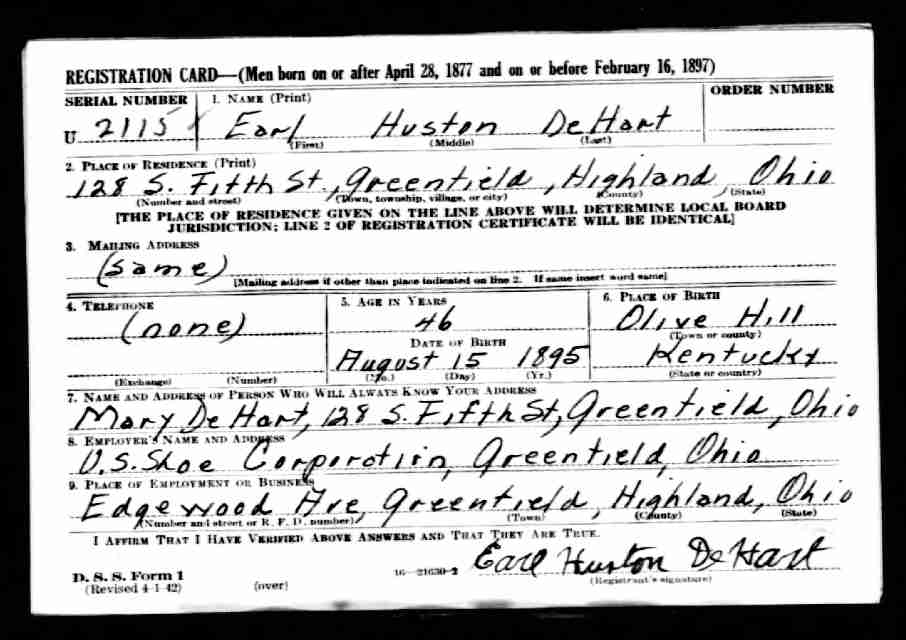 REGISTRATION CARD—(Men born on or after April 28, 1877 and on or before February 16, 1897)
SERIAL NUMBER 1. NAME (Print) ORDER NUMBER
U 2115 Earl Huston DeHart
(First) (Middle) (Last)
2. PLACE OF RESIDENCE (Print)
128 S. Fifth St., Greenfield, Highland Ohio
(Number and street) (Town, township, village, or city) (County) (State)
[THE PLACE OF RESIDENCE GIVEN ON THE LINE ABOVE WILL DETERMINE LOCAL BOARD
JURISDICTION; LINE 2 OF REGISTRATION CERTIFICATE WILL BE IDENTICAL]
3. MAILING ADDRESS
(same)
[Mailing address if other than place indicated on line 2. If same insert word same]
4. TELEPHONE 5. AGE IN YEARS 6. PLACE OF BIRTH
(none) 46 Olive Hill
(Town or county)
DATE OF BIRTH
August 15 1895 Kentucky
(Exchange) (Number) (Mo.) (Day) (Yr.) (State or country)
7. NAME AND ADDRESS OF PERSON WHO WILL ALWAYS KNOW YOUR ADDRESS
Mary DeHart, 128 S. Fifth St, Greenfield, Ohio
8. EMPLOYER'S NAME AND ADDRESS
U.S. Shoe Corporation, Greenfield, Ohio
9. PLACE OF EMPLOYMENT OR BUSINESS
Edgewood Ave, Greenfield, Highland, Ohio
(Number and street or R. F. D. number) (Town) (County) (State)
I AFFIRM THAT I HAVE VERIFIED ABOVE ANSWERS AND THAT THEY ARE TRUE.
Earl Huston DeHart
D. S. S. Form 1 16—21630-2 (Registrant's signature)
(Revised 4-1-42) (over)